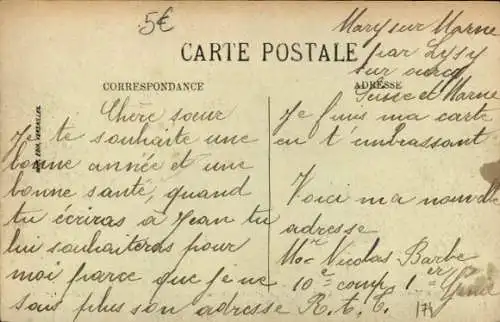 5€
Mary sur Marne
par Lysy
sur ourcq
Seine et Marne
CARTE POSTALE
CORRESPONDANCE
ADRESSE
Chère sœur
Je te souhaite une
bonne année et une
bonne santé, quand
tu écriras à Jean tu
lui souhaiteras pour
moi parce que je ne
sais plus son adresse
Je finis ma carte
en t'embrassant
Voici ma nouvelle
adresse
Nicolas Barbe
10e comp. 1er Génie
174